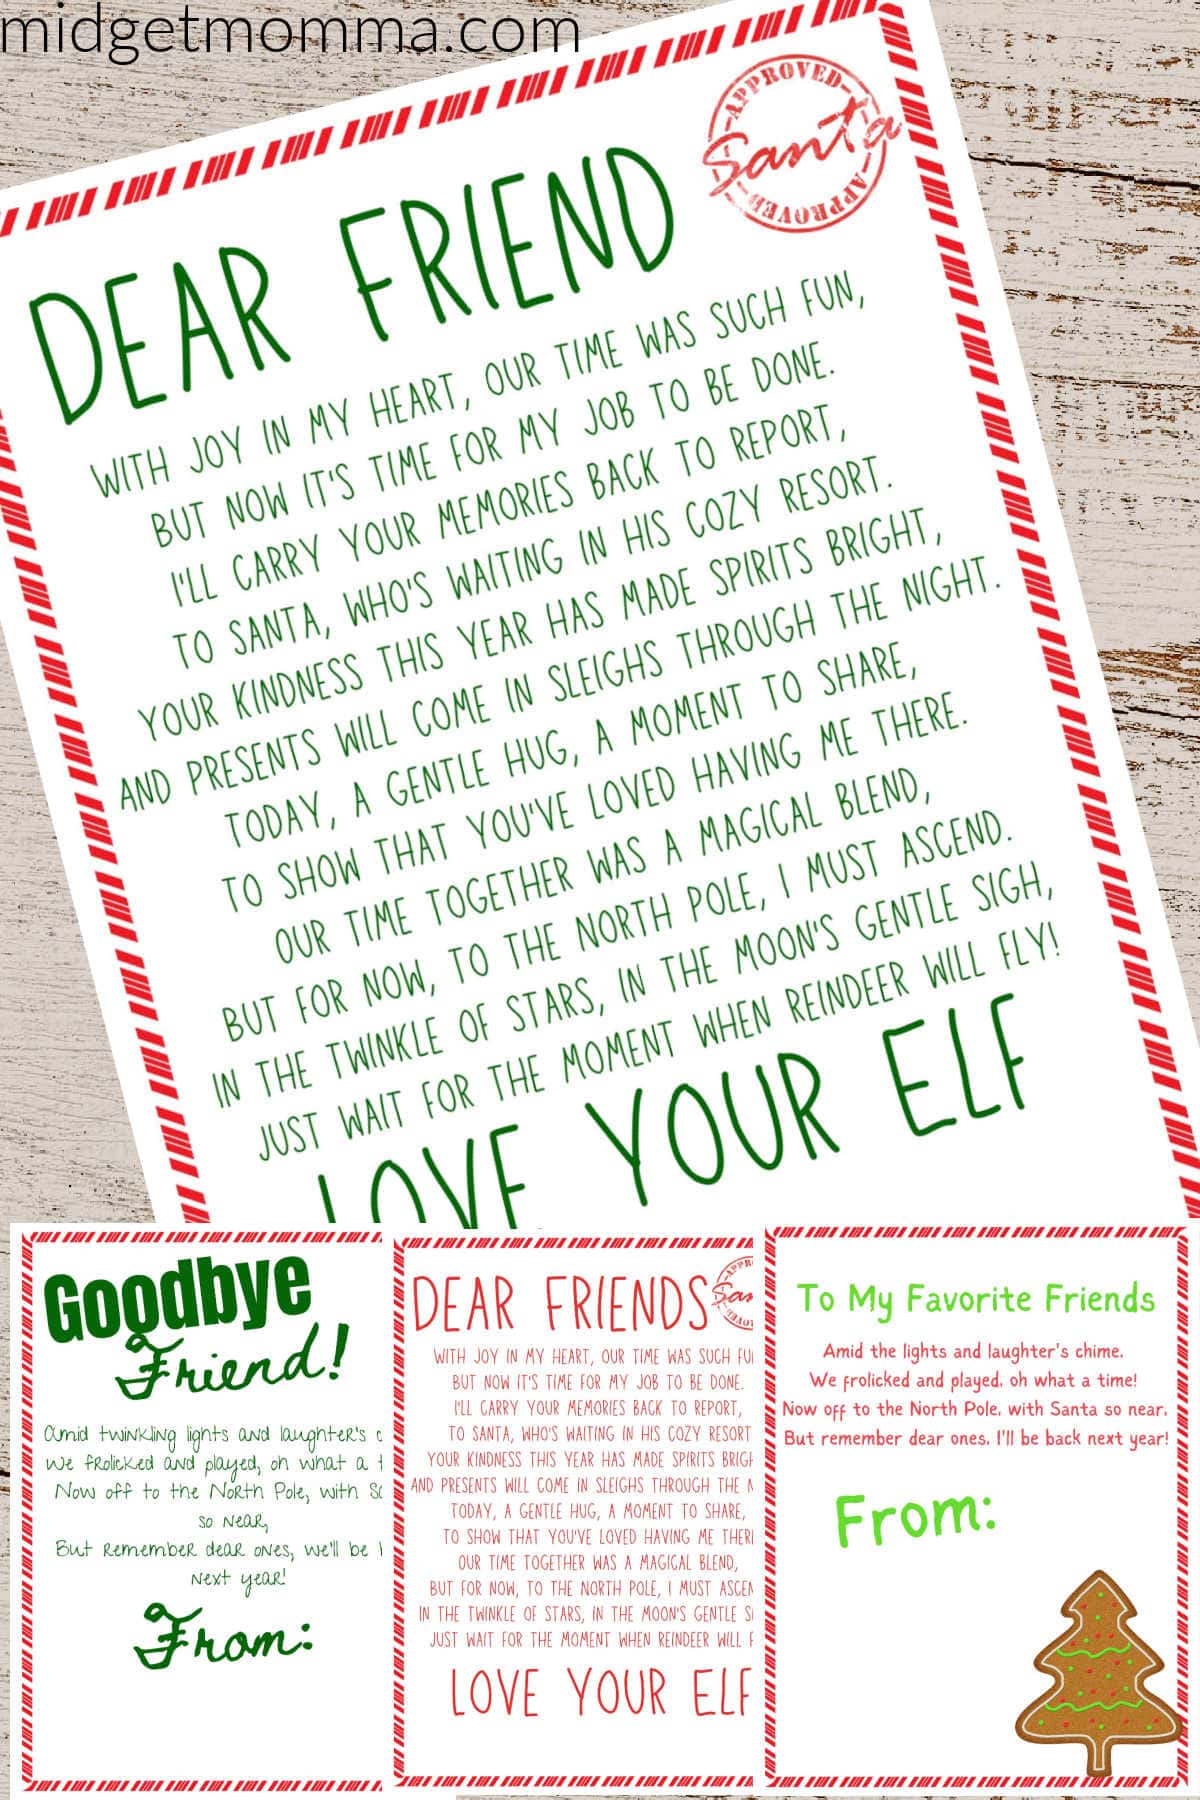 midgetmomma.com
APPROVED
Santa
APPROVED
DEAR FRIEND
WITH JOY IN MY HEART, OUR TIME WAS SUCH FUN,
BUT NOW IT'S TIME FOR MY JOB TO BE DONE.
I'LL CARRY YOUR MEMORIES BACK TO REPORT,
TO SANTA, WHO'S WAITING IN HIS COZY RESORT.
YOUR KINDNESS THIS YEAR HAS MADE SPIRITS BRIGHT,
AND PRESENTS WILL COME IN SLEIGHS THROUGH THE NIGHT.
TODAY, A GENTLE HUG, A MOMENT TO SHARE,
TO SHOW THAT YOU'VE LOVED HAVING ME THERE.
OUR TIME TOGETHER WAS A MAGICAL BLEND,
BUT FOR NOW, TO THE NORTH POLE, I MUST ASCEND.
IN THE TWINKLE OF STARS, IN THE MOON'S GENTLE SIGH,
JUST WAIT FOR THE MOMENT WHEN REINDEER WILL FLY!
LOVE YOUR ELF
Goodbye
Friend!
Amid twinkling lights and laughter's c
We frolicked and played, oh what a t
Now off to the North Pole, with Sa
so near,
But remember dear ones, we'll be b
next year!
From:
DEAR FRIENDS
APPR
San
WITH JOY IN MY HEART, OUR TIME WAS SUCH FU
BUT NOW IT'S TIME FOR MY JOB TO BE DONE.
I'LL CARRY YOUR MEMORIES BACK TO REPORT,
TO SANTA, WHO'S WAITING IN HIS COZY RESORT
YOUR KINDNESS THIS YEAR HAS MADE SPIRITS BRIGH
AND PRESENTS WILL COME IN SLEIGHS THROUGH THE N
TODAY, A GENTLE HUG, A MOMENT TO SHARE,
TO SHOW THAT YOU'VE LOVED HAVING ME THER
OUR TIME TOGETHER WAS A MAGICAL BLEND,
BUT FOR NOW, TO THE NORTH POLE, I MUST ASCEN
IN THE TWINKLE OF STARS, IN THE MOON'S GENTLE S
JUST WAIT FOR THE MOMENT WHEN REINDEER WILL F
LOVE YOUR ELF
To My Favorite Friends
Amid the lights and laughter's chime,
We frolicked and played, oh what a time!
Now off to the North Pole, with Santa so near,
But remember dear ones, I'll be back next year!
From: